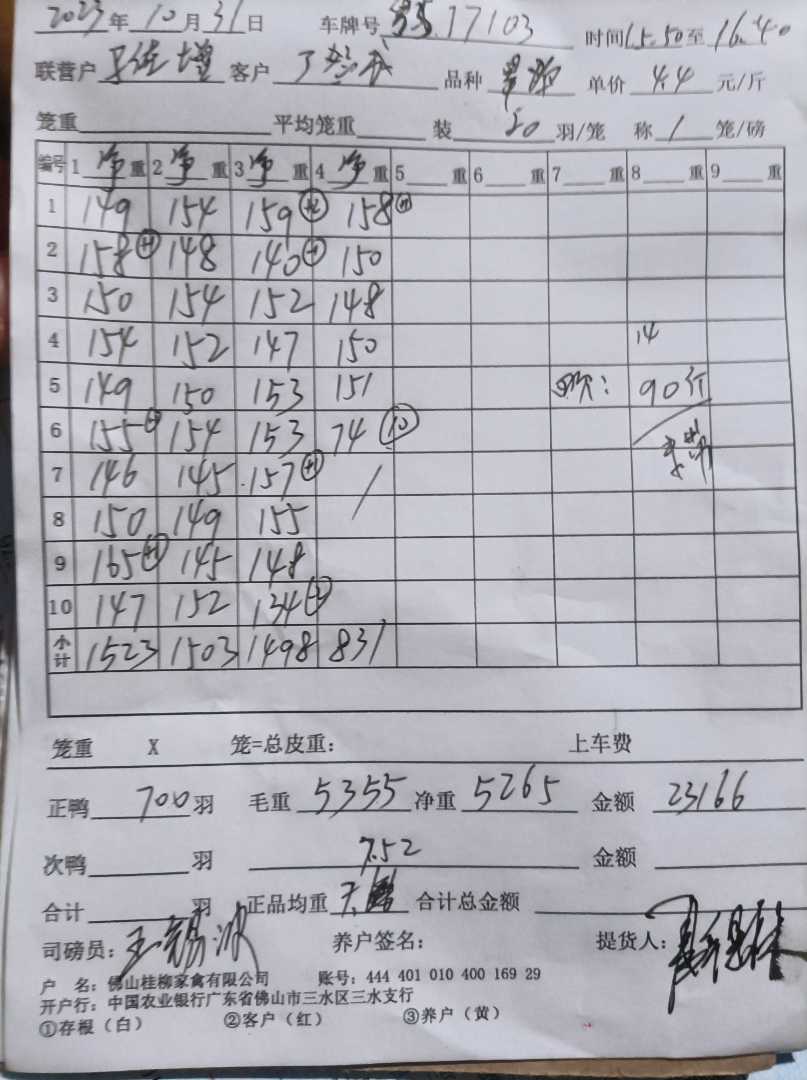 2023年10月31日 车牌号 17103 时间15.50至16.40
联营户 客户 品种 单价 4.4 元/斤
笼重 平均笼重 装 20 羽/笼 称 1 笼/磅
编号 1 净 重 2 净 重 3 净 重 4 净 重 5 重 6 重 7 重 8 重 9 重
1 149 154 159 158
2 158 148 140 150
3 150 154 152 148
4 154 152 147 150 14
5 149 150 153 151 90斤
6 155 154 153 74 10
7 146 145 157
8 150 149 155
9 165 145 148
10 147 152 134
小计 1523 1503 1498 831
笼重 X 笼=总皮重： 上车费
正鸭 700 羽 毛重 5355 净重 5265 金额 23166
次鸭 羽 7.52 金额
合计 羽 正品均重 合计总金额
司磅员： 养户签名： 提货人：
户 名：佛山桂柳家禽有限公司 账号：444 401 010 400 169 29
开户行：中国农业银行广东省佛山市三水区三水支行
①存根（白） ②客户（红） ③养户（黄）